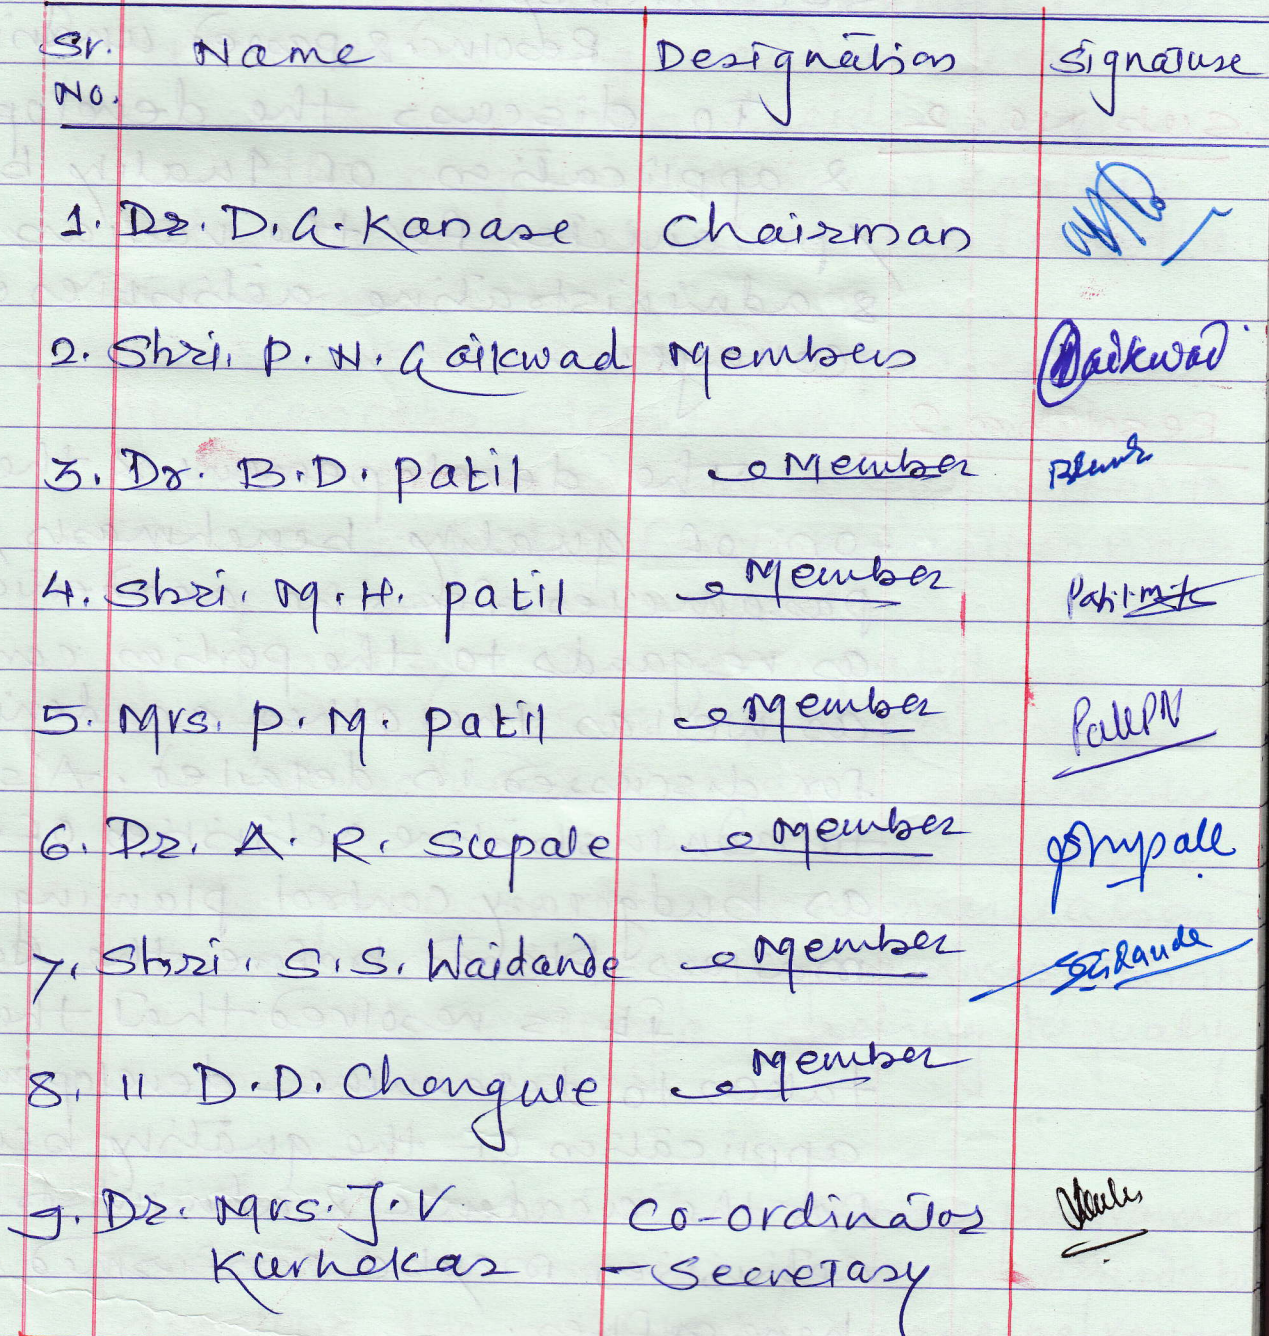 Sr. Name Designation Signature
No.
1. Dr. D. G. Kanase Chairman
2. Shri. P. N. Gaikwad Members Gaikwad
3. Dr. B. D. Patil Member
4. Shri. M. H. Patil Member Patil
5. Mrs. P. M. Patil Member
6. Dr. A. R. Supale Member
7. Shri. S. S. Waidande Member
8. 11 D. D. Chougule Member
9. Dr. Mrs. J. V Co-ordinator
Kurhekar - Secretary